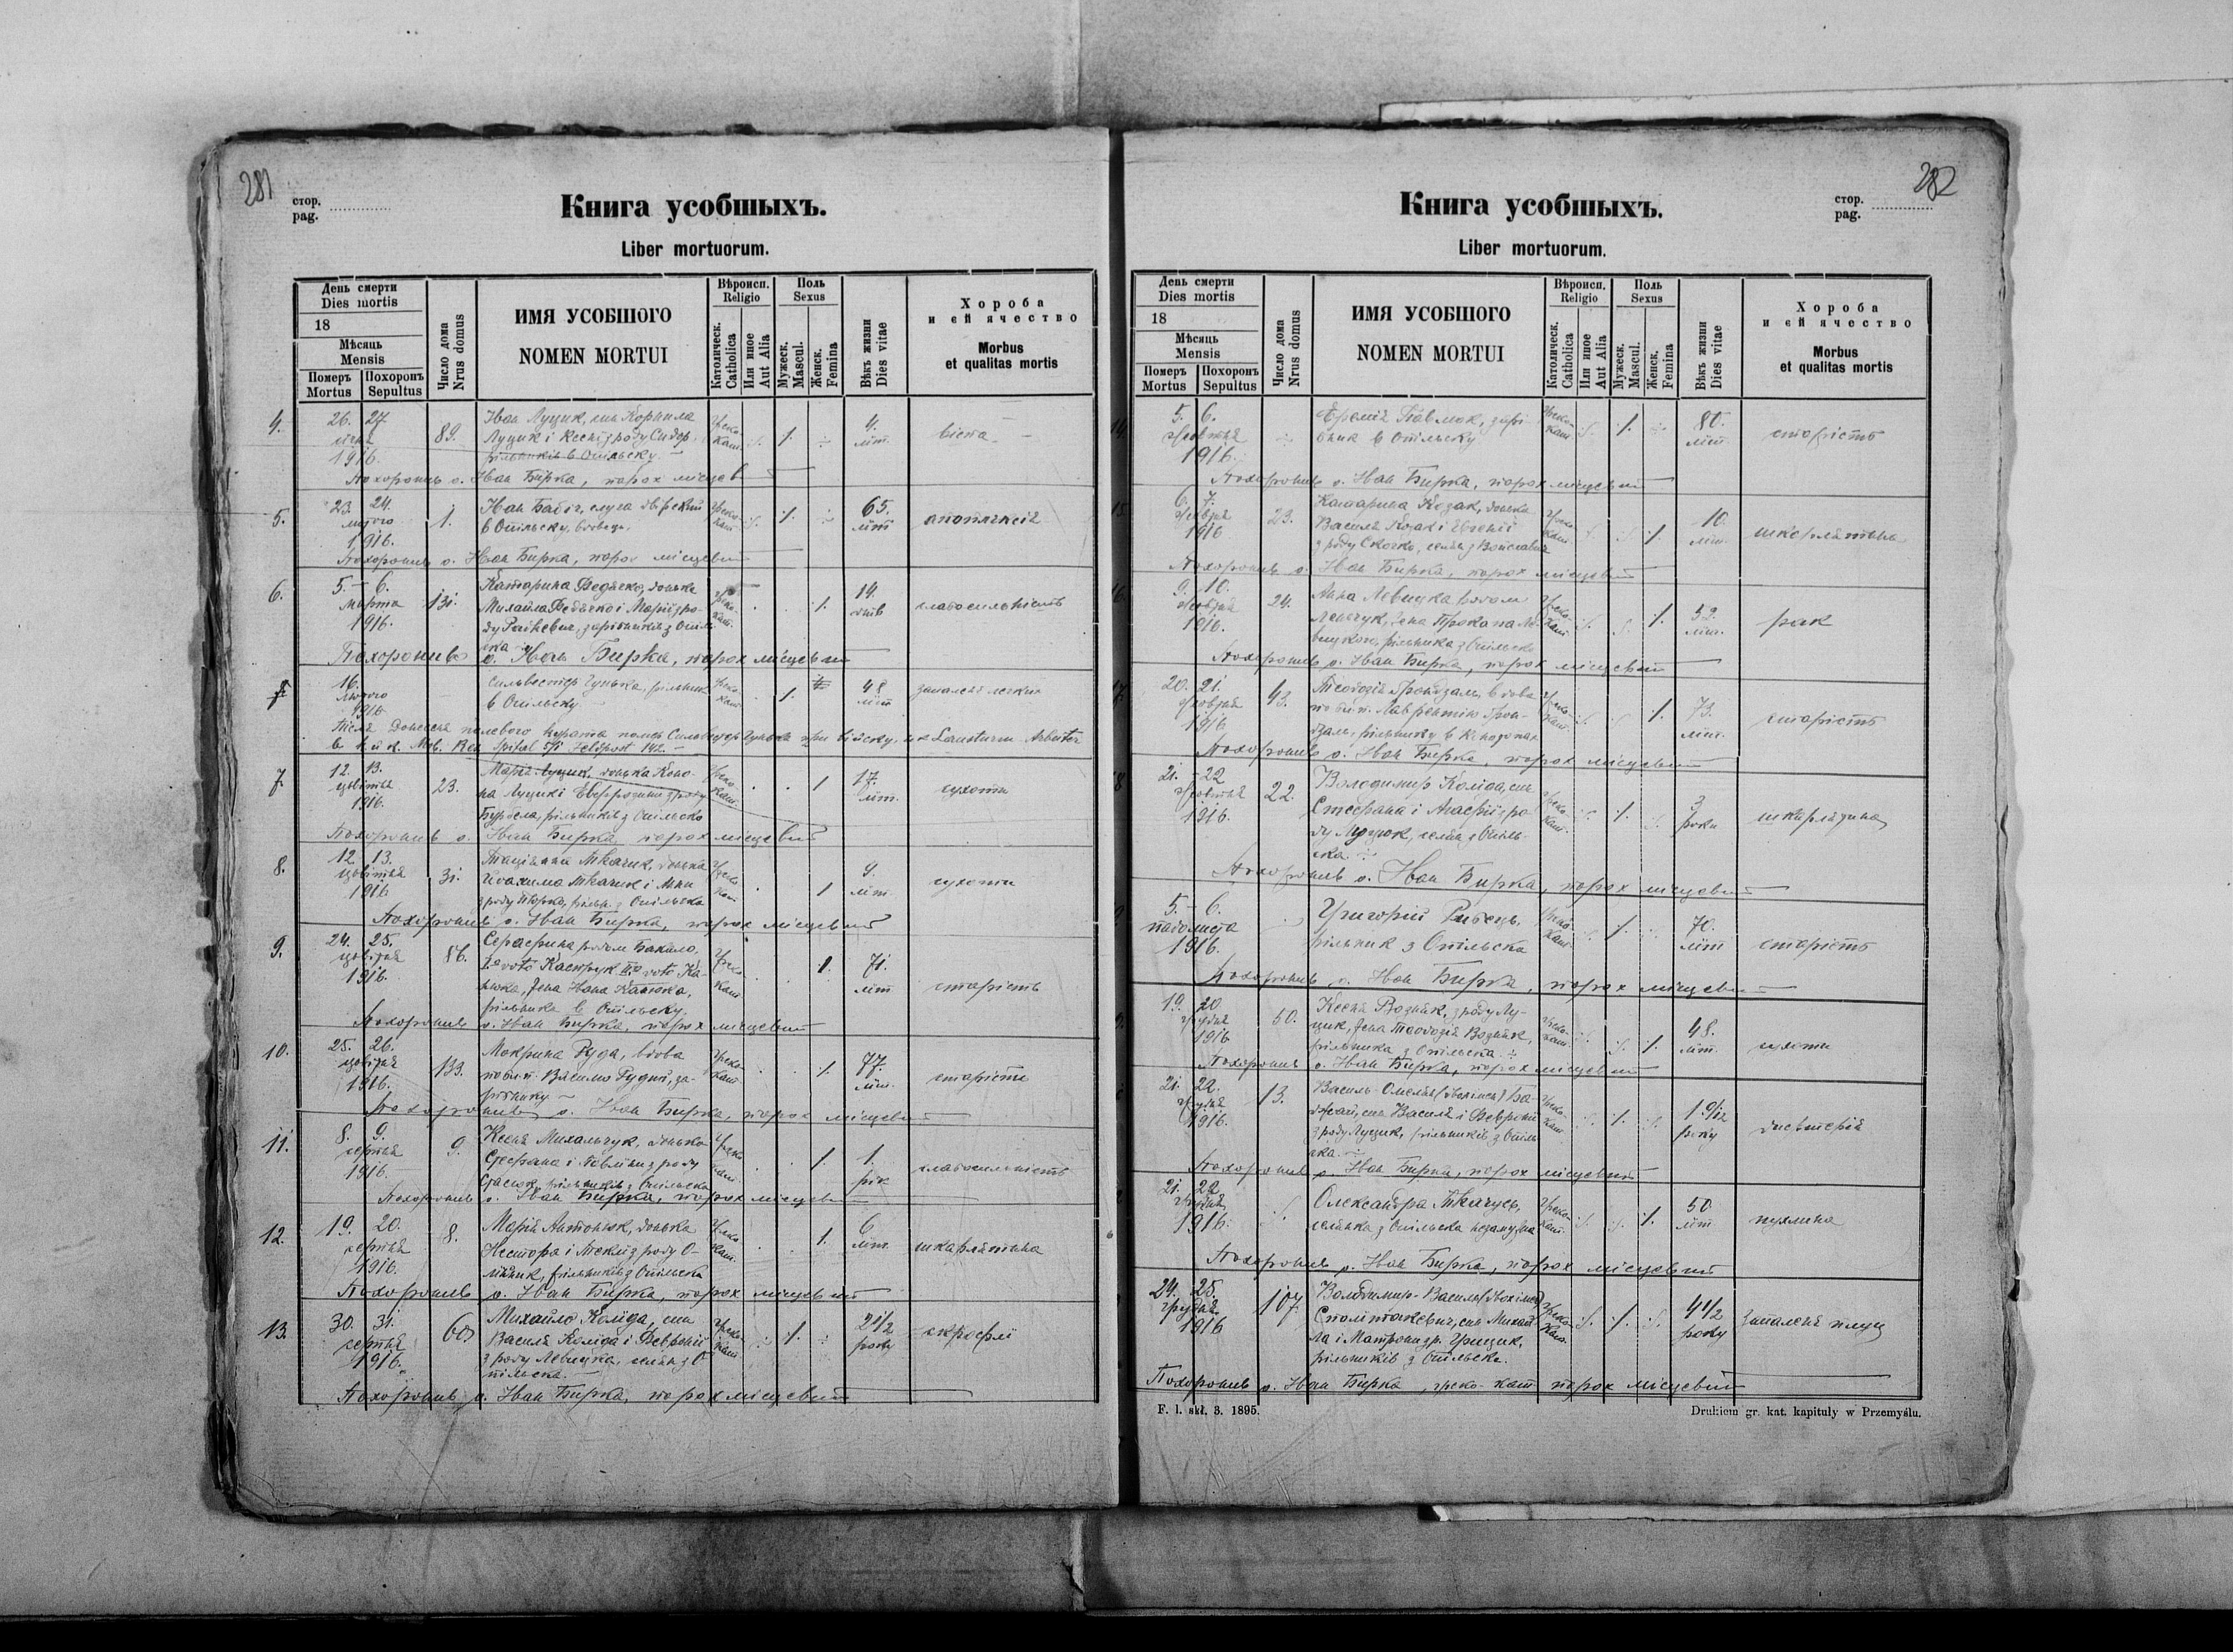 281
стор.
pag.
Книга усобшыхъ.
Liber mortuorum.
День смерти
Dies mortis
18
Мѣсяць
Mensis
Померъ
Mortus
Похоронъ
Sepultus
Число дома
Nrus domus
ИМЯ УСОБШОГО
NOMEN MORTUI
Вѣроисп.
Religio
Католическ.
Catholica
Или иное
Aut Alia
Поль
Sexus
Мужеск.
Mascul.
Женск.
Femina
Вѣкъ жизни
Dies vitae
Хороба
и ей ячество
Morbus
et qualitas mortis
4. 26. 27. 89. Іван Луцик, син Корнила Греко- 1. 4. віспа
січня Луцик і Ксені з роду Сидор, кат. літ.
1916. рільників в Опільску.
Похоронив о. Іван Бирка, парох місцевий
5. 23. 24. 1. Іван Бабіч, слуга двірский Греко- 1. 65. апоплексія
лютого в Опільску, вдовець. кат. літ
1916.
Похоронив о. Іван Бирка, парох місцевий
6. 5. 6. 131. Катарина Федечко, донька Греко- 1. 14. слабосильність
марта Михайла Федечко і Марії з ро- кат. днів
1916. ду зарібників з Опіль
ска
Похоронив о. Іван Бирка, парох місцевий
16. Сильвестер Гунька, рільник Греко- 1. 48 запалення легких
лютого в Опільску кат. літ
1916
Після донесеня полевого курата помер Сильвестер Гунька при війску, Landsturm Arbeiter
в k. u. k. Mob. Res. Spital 5/1 Feldpost 142.
7. 12. 13. 23. Марія Луцик, донька Коно- Греко- 1 17. сухоти
цьвітня на Луцик і Евфрозини з роду кат. літ.
1916. рільників з Опільско
Похоронив о. Іван Бирка, парох місцевий
8. 12. 13. 31. Ткачик, донька Греко 1 9. сухоти
цьвітня Йоахима Ткачик і Анни кат літ.
1916. з роду рільн. з Опільска
Похоронив о. Іван Бирка, парох місцевий
9. 24. 25. 86. Серафина родом Бакало, Греко 1. 71. старість
цьвітня Iº voto Каспрук IIº voto Ка- кат літ
1916. нюка, жена Івана Канюка,
рільника в Опільску.
Похоронив о. Іван Бирка, парох місцевий
10. 25. 26. 133. Мокрина Руда, вдова Греко- 1. 77. старість
цьвітня по бл. п. Василю Рудим, за- кат літ.
1916. рібнику
Похоронив о. Іван Бирка, парох місцевий
11. 8. 9. 9. Ксеня Михальчук, донька Греко 1. 1. слабосильність
серпня Стефана і Павліни з роду кат рік
1916. Стасюк, рільників з Опільска
Похоронив о. Іван Бирка, парох місцевий
12. 19. 20. 8. Марія Антонюк, донька Греко 1. 6. шкарлятина
серпня Нестора і Теклі з роду О- кат. літ.
1916. рільників з Опільска
Похоронив о. Іван Бирка, парох місцевий
13. 30. 31. 60 Михайло Коляда, син Греко- 1. 2 1/2 скрофлі
серпня Василя Коляда і Февронії кат року
1916. з роду Левицка, селян з О
пільска.
Похоронив о. Іван Бирка, парох місцевий
282
стор.
pag.
Книга усобшыхъ.
Liber mortuorum.
День смерти
Dies mortis
18
Мѣсяць
Mensis
Померъ
Mortus
Похоронъ
Sepultus
Число дома
Nrus domus
ИМЯ УСОБШОГО
NOMEN MORTUI
Вѣроисп.
Religio
Католическ.
Catholica
Или иное
Aut Alia
Поль
Sexus
Мужеск.
Mascul.
Женск.
Femina
Вѣкъ жизни
Dies vitae
Хороба
и ей ячество
Morbus
et qualitas mortis
14. 5. 6. Еремія Павлюк, зарі- Греко- 1. 80. старість
жовтня бник в Опільску кат літ.
1916.
Похоронив о. Іван Бирка, парох місцевий
15. 6. 7. 23. Катарина Козак, донька Греко- 1 10. шкарлятина
жовтня Василя Козак і Євгенії кат. літ.
1916 з роду Скочко, селян з Войславич
Похоронив о. Іван Бирка, парох місцевий
16. 9. 10. 24. Анна Левицка родом Греко- 1. 52. рак
жовтня жена Прокопа Ле- кат. літ.
1916. вицкого, рільника з Опільско
Похоронив о. Іван Бирка, парох місцевий
17. 20. 21. 43. Теодозія Грондзаль, вдова Греко- 1. 73. старість
жовтня по бл. п. Лаврентію Грон- кат. літ.
1916 дзаль, рільнику в
Похоронив о. Іван Бирка, парох місцевий
18 21. - 22 22. Володимир Коляда, син Греко- 1. 3 шкарлятина
жовтня Стефана і Анастазії з ро кат. роки
1916. ду Луцюк, селян з Опіль-
ска
Похоронив о. Іван Бирка, парох місцевий
5. - 6. Григорій Рибець, Греко- 1. 70. старість
падолиста рільник з Опільска кат літ
1916.
Похоронив о. Іван Бирка, парох місцевий
19. 20 50. Ксеня Возняк, з роду Лу- Греко- 1. 48. сухоти
грудня цик, жена Теодозія Возняк, кат. літ.
1916 рільника з Опільска
Похоронив о. Іван Бирка, парох місцевий
21. 22. 13. Василь Омелян (двоімен) Греко- 1. 1 9/12 дифтерія
грудня син Василя і Февронії кат. року
1916. з роду Луцик, рільників з Опіль
ска
Похоронив о. Іван Бирка, парох місцевий
21. 22 Олександра Ткачук, Греко- 1. 50 пухлина
грудня селянка з Опільска незамужна кат. літ
1916.
Похоронив о. Іван Бирка, парох місцевий
24. 25. 107. Володимир-Василь (двоімен) Греко- 1. 4 1/2 запаленя плуц
грудня син Михай кат. року
1916 ла і Матрони зр. Грицик,
рільників з Опільска.
Похоронив о. Іван Бирка, греко-кат парох місцевий
F. l. skł. 3. 1895.
Drukiem gr. kat. kapituły w Przemyślu.